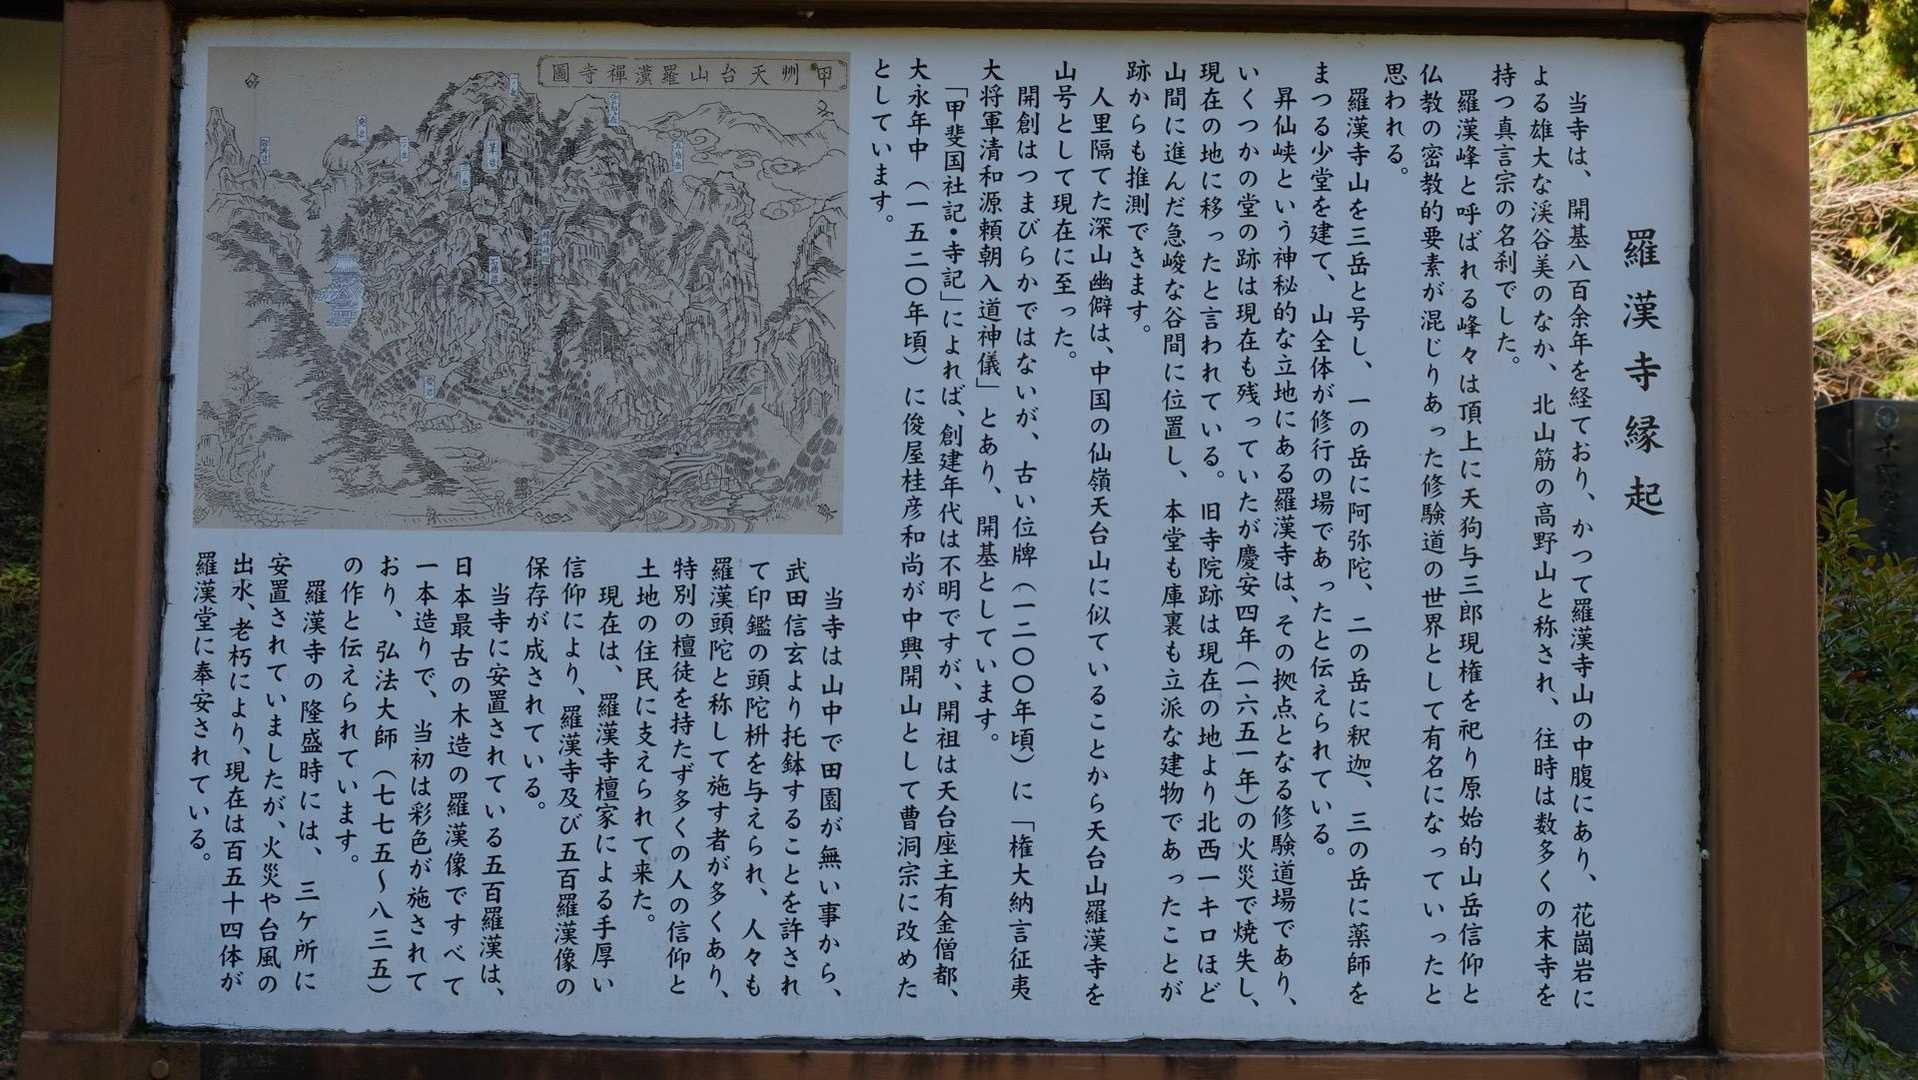 羅漢寺縁起
当寺は、開基八百余年を経ており、かつて羅漢寺山の中腹にあり、花崗岩に
よる雄大な渓谷美のなか、北山筋の高野山と称され、往時は数多くの末寺を
持つ真言宗の名刹でした。
羅漢峰と呼ばれる峰々は頂上に天狗与三郎現権を祀り原始的山岳信仰と
仏教の密教的要素が混じりあった修験道の世界として有名になっていったと
思われる。
羅漢寺山を三岳と号し、一の岳に阿弥陀、二の岳に釈迦、三の岳に薬師を
まつる少堂を建て、山全体が修行の場であったと伝えられている。
昇仙峡という神秘的な立地にある羅漢寺は、その拠点となる修験道場であり、
いくつかの堂の跡は現在も残っていたが慶安四年(一六五一年)の火災で焼失し、
現在の地に移ったと言われている。旧寺院跡は現在の地より北西一キロほど
山間に進んだ急峻な谷間に位置し、本堂も庫裏も立派な建物であったことが
跡からも推測できます。
人里隔てた深山幽僻は、中国の仙嶺天台山に似ていることから天台山羅漢寺を
山号として現在に至った。
開創はつまびらかではないが、古い位牌(一二〇〇年頃)に「権大納言征夷
大将軍清和源頼朝入道神儀」とあり、開基としています。
「甲斐国社記・寺記」によれば、創建年代は不明ですが、開祖は天台座主有金僧都、
大永年中(一五二〇年頃)に俊屋桂彦和尚が中興開山として曹洞宗に改めた
としています。
甲州天台山羅漢禪寺圖
当寺は山中で田園が無い事から、
武田信玄より托鉢することを許され
て印鑑の頭陀枡を与えられ、人々も
羅漢頭陀と称して施す者が多くあり、
特別の檀徒を持たず多くの人の信仰と
土地の住民に支えられて来た。
現在は、羅漢寺檀家による手厚い
信仰により、羅漢寺及び五百羅漢像の
保存が成されている。
当寺に安置されている五百羅漢は、
日本最古の木造の羅漢像ですべて
一本造りで、当初は彩色が施されて
おり、弘法大師(七七五〜八三五)
の作と伝えられています。
羅漢寺の隆盛時には、三ケ所に
安置されていましたが、火災や台風の
出水、老朽により、現在は百五十四体が
羅漢堂に奉安されている。